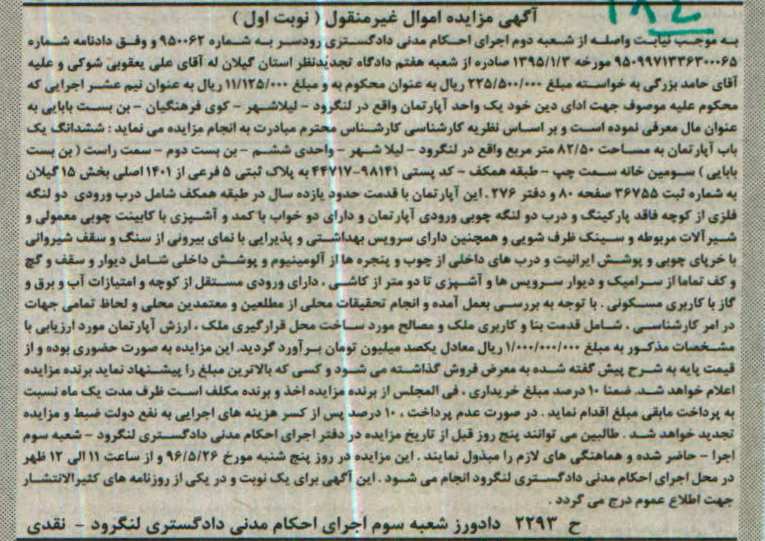 ۱۸۲
آگهی مزایده اموال غیرمنقول ( نوبت اول )
به موجب نیابت واصله از شعبه دوم اجرای احکام مدنی دادگستری رودسر به شماره ۹۵۰۰۶۲ و وفق دادنامه شماره
۹۵۰۹۹۷۱۳۳۶۳۰۰۰۶۵ مورخه ۱۳۹۵/۱/۳ صادره از شعبه هفتم دادگاه تجدیدنظر استان گیلان له آقای علی یعقوبی شوکی و علیه
آقای حامد بزرگی به خواسته مبلغ ۲۲۵/۵۰۰/۰۰۰ ریال به عنوان محکوم به و مبلغ ۱۱/۱۲۵/۰۰۰ ریال به عنوان نیم عشر اجرایی که
محکوم علیه موصوف جهت ادای دین خود یک واحد آپارتمان واقع در لنگرود - لیلاشهر - کوی فرهنگیان - بن بست بابایی به
عنوان مال معرفی نموده است و بر اساس نظریه کارشناسی کارشناس محترم مبادرت به انجام مزایده می نماید : ششدانگ یک
باب آپارتمان به مساحت ۸۲/۵۰ متر مربع واقع در لنگرود - لیلا شهر - واحدی ششم - بن بست دوم - سمت راست ( بن بست
بابایی ) سومین خانه سمت چپ - طبقه همکف - کد پستی ۹۸۱۴۱-۴۴۷۱۷ به پلاک ثبتی ۵ فرعی از ۱۴۰۱ اصلی بخش ۱۵ گیلان
به شماره ثبت ۳۶۷۵۵ صفحه ۸۰ و دفتر ۲۷۶ . این آپارتمان با قدمت حدود یازده سال در طبقه همکف شامل درب ورودی دو لنگه
فلزی از کوچه فاقد پارکینگ و درب دو لنگه چوبی ورودی آپارتمان و دارای دو خواب با کمد و آشپزی با کابینت چوبی معمولی و
شیرآلات مربوطه و سینک ظرف شویی و همچنین دارای سرویس بهداشتی و پذیرایی با نمای بیرونی از سنگ و سقف شیروانی
با خرپای چوبی و پوشش ایرانیت و درب های داخلی از چوب و پنجره ها از آلومینیوم و پوشش داخلی شامل دیوار و سقف و گچ
و کف تماما از سرامیک و دیوار سرویس ها و آشپزی تا دو متر از کاشی ، دارای ورودی مستقل از کوچه و امتیازات آب و برق و
گاز با کاربری مسکونی . با توجه به بررسی بعمل آمده و انجام تحقیقات محلی از مطلعین و معتمدین محلی و لحاظ تمامی جهات
در امر کارشناسی ، شامل قدمت بنا و کاربری ملک و مصالح مورد ساخت محل قرارگیری ملک ، ارزش آپارتمان مورد ارزیابی با
مشخصات مذکور به مبلغ ۱/۰۰۰/۰۰۰/۰۰۰ ریال معادل یکصد میلیون تومان برآورد گردید. این مزایده به صورت حضوری بوده و از
قیمت پایه به شرح پیش گفته شده به معرض فروش گذاشته می شود و کسی که بالاترین مبلغ را پیشنهاد نماید برنده مزایده
اعلام خواهد شد. ضمنا ۱۰ درصد مبلغ خریداری ، فی المجلس از برنده مزایده اخذ و برنده مکلف است ظرف مدت یک ماه نسبت
به پرداخت مابقی مبلغ اقدام نماید . در صورت عدم پرداخت ، ۱۰ درصد پس از کسر هزینه های اجرایی به نفع دولت ضبط و مزایده
تجدید خواهد شد . طالبین می توانند پنج روز قبل از تاریخ مزایده در دفتر اجرای احکام مدنی دادگستری لنگرود - شعبه سوم
اجرا - حاضر شده و هماهنگی های لازم را مبذول نمایند . این مزایده در روز پنج شنبه مورخ ۹۶/۵/۲۶ و از ساعت ۱۱ الی ۱۲ ظهر
در محل اجرای احکام مدنی دادگستری لنگرود انجام می شود . این آگهی برای یک نوبت و در یکی از روزنامه های کثیرالانتشار
جهت اطلاع عموم درج می گردد .
ح ۲۲۹۳ دادورز شعبه سوم اجرای احکام مدنی دادگستری لنگرود - نقدی